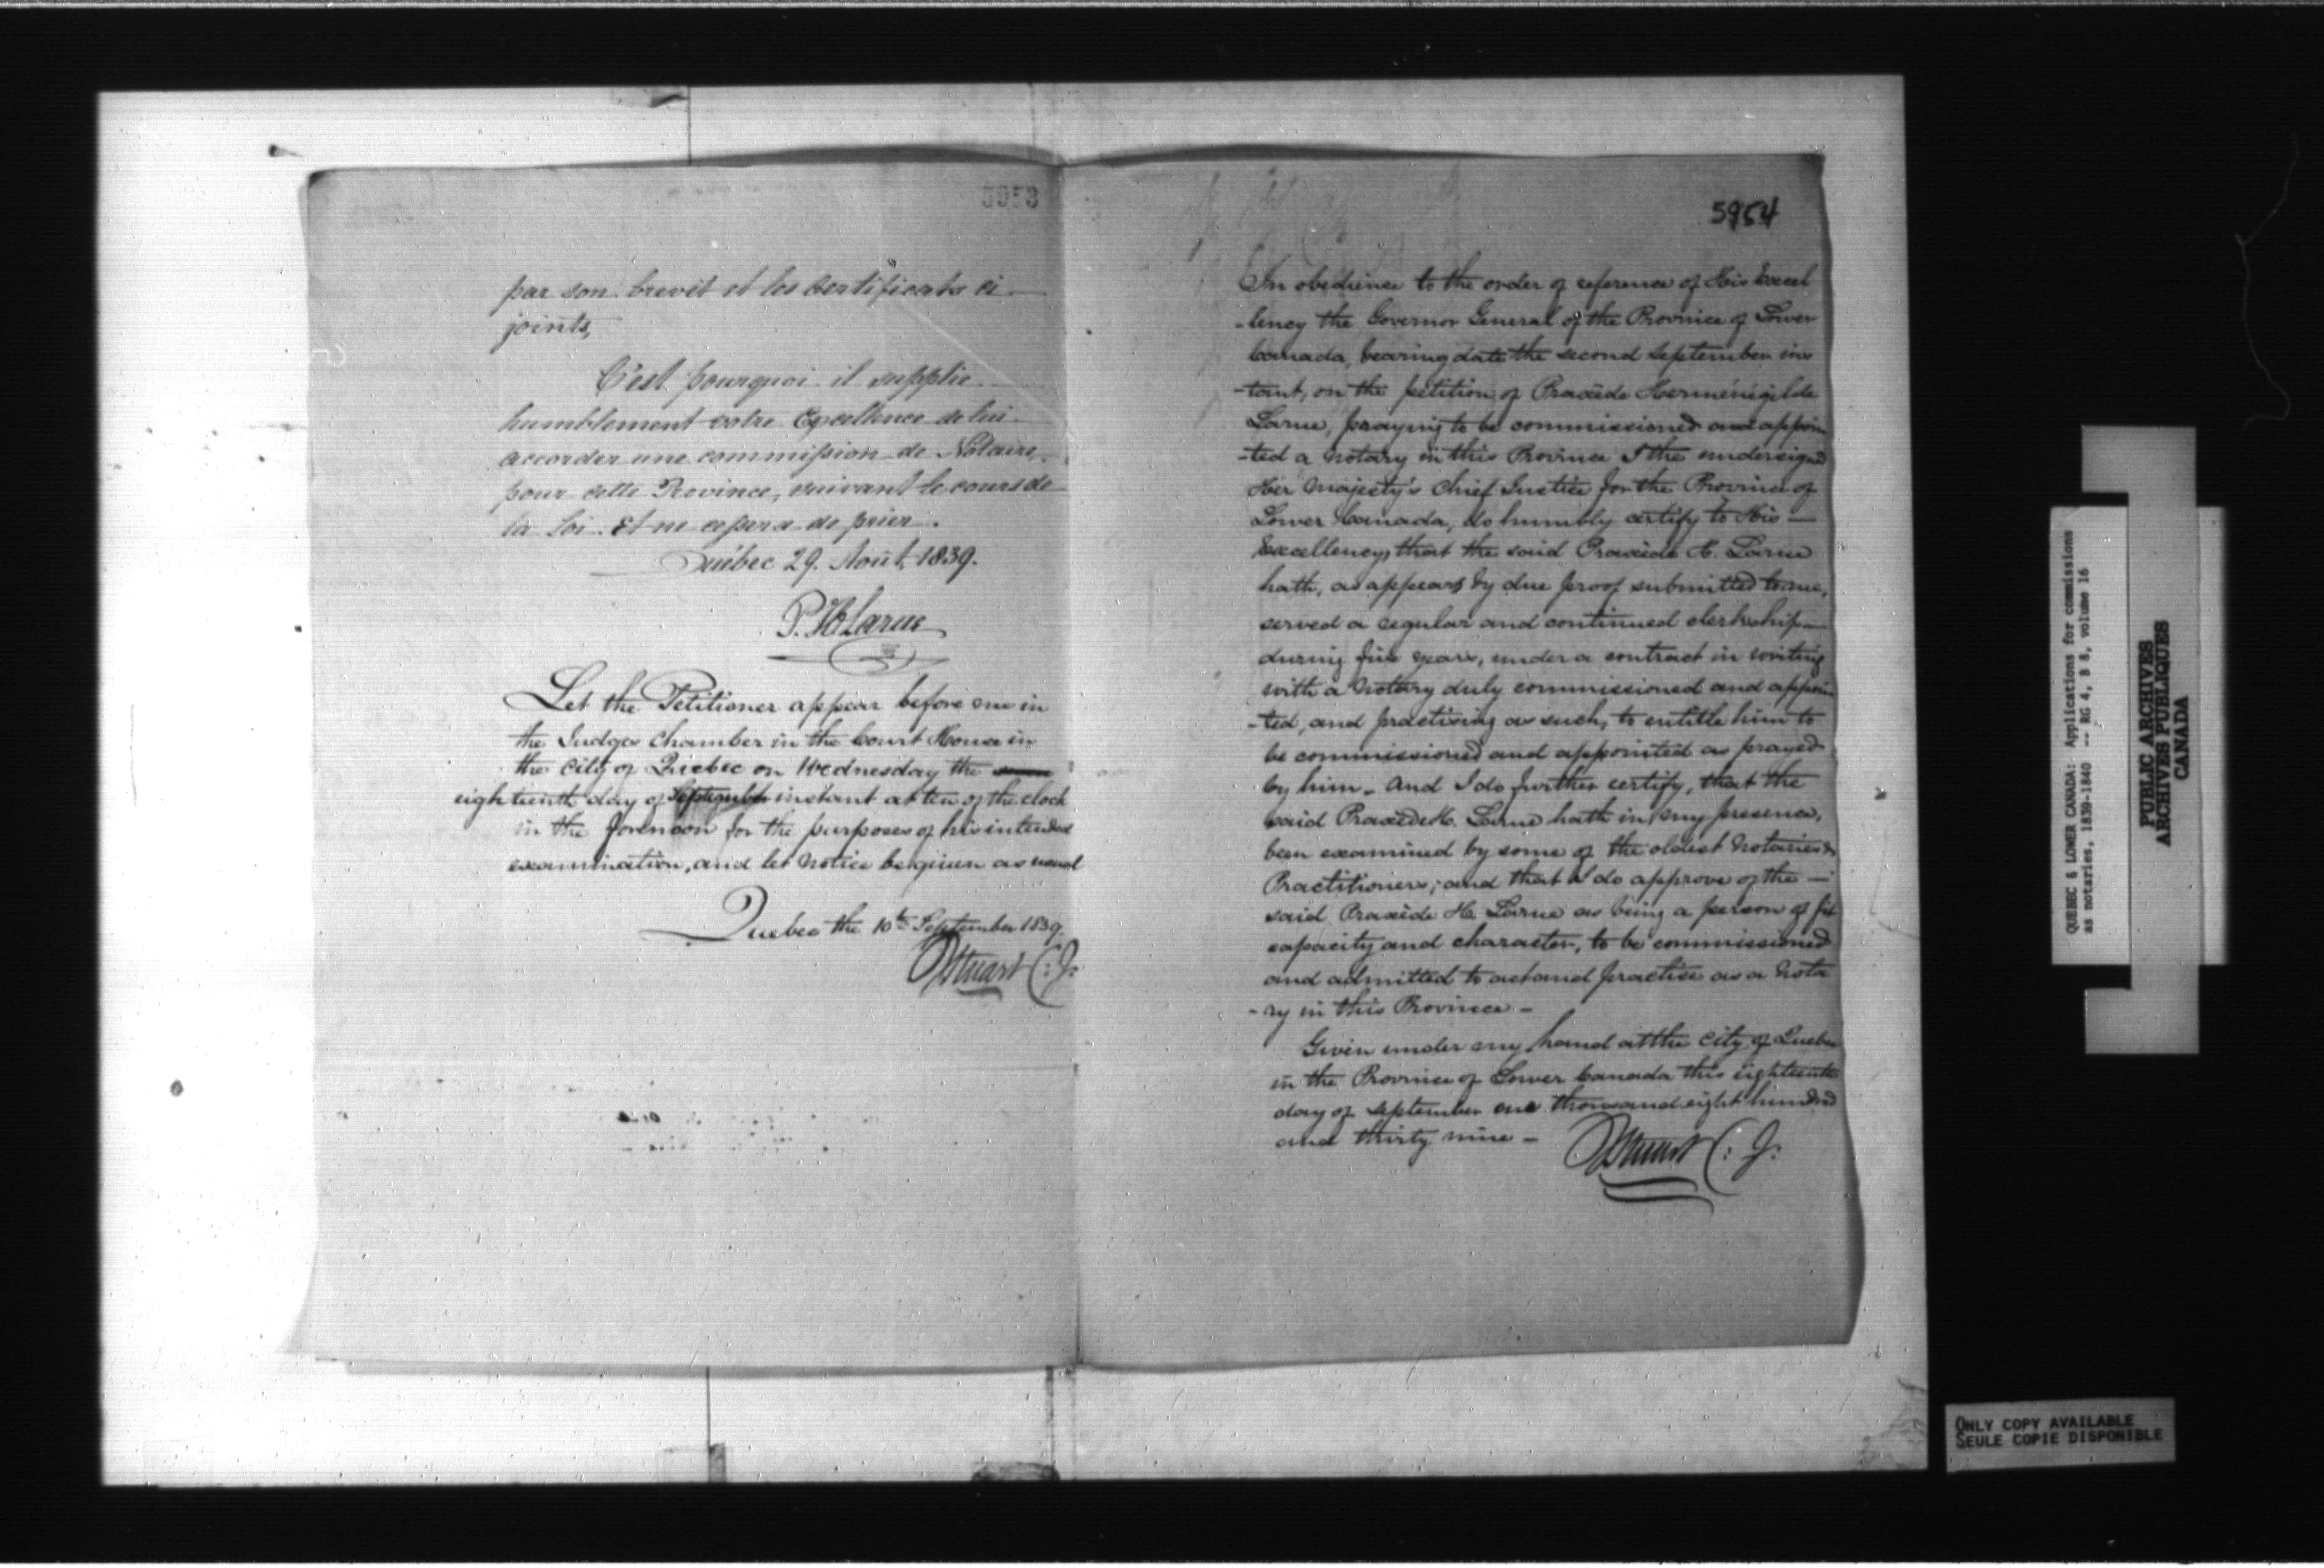 5953
par son brevet et les certificats ci-
joints,
C'est pourquoi il supplie
humblement votre Excellence de lui
accorder une commission de Notaire,
pour cette Province, suivant le cours de
la Loi. Et ne cessera de prier.
Québec 29. Août, 1839.
P. H Larue
Let the Petitioner appear before me in
the Judges Chamber in the Court House in
the City of Quebec on Wednesday the
eighteenth day of September instant at ten of the clock
in the forenoon for the purposes of his intended
examination, and let notice be given as usual
Quebec the 10th September 1839.
JStuart C: J:
5954
In obedience to the order of reference of His Excel
-lency the Governor General of the Province of Lower
Canada, bearing date the second September ins
-tant, on the petition of Praxède Herménégilde
Larue, praying to be commissioned and appoin
-ted a Notary in this Province I the undersigned
Her Majesty's Chief Justice for the Province of
Lower Canada, do humbly certify to His —
Excellency, that the said Praxède H. Larue
hath, as appears by due proof submitted to me,
served a regular and continued clerkship —
during five years, under a contract in writing
with a Notary duly commissioned and appoin
-ted, and practising as such, to entitle him to
be commissioned and appointed as prayed
by him. And I do further certify, that the
said Praxède H. Larue hath in my presence,
been examined by some of the oldest Notaries &
Practitioners; and that I do approve of the —
said Praxède H. Larue as being a person of fit
capacity and character, to be commissioned
and admitted to act and practise as a Nota
-ry in this Province -
Given under my hand at the City of Quebec
in the Province of Lower Canada this eighteenth
day of September one thousand eight hundred
and thirty nine -
JStuart C: J:
QUEBEC & LOWER CANADA: Applications for commissions
as notaries, 1839-1840 -- RG 4, B 8, volume 16
PUBLIC ARCHIVES
ARCHIVES PUBLIQUES
CANADA
ONLY COPY AVAILABLE
SEULE COPIE DISPONIBLE